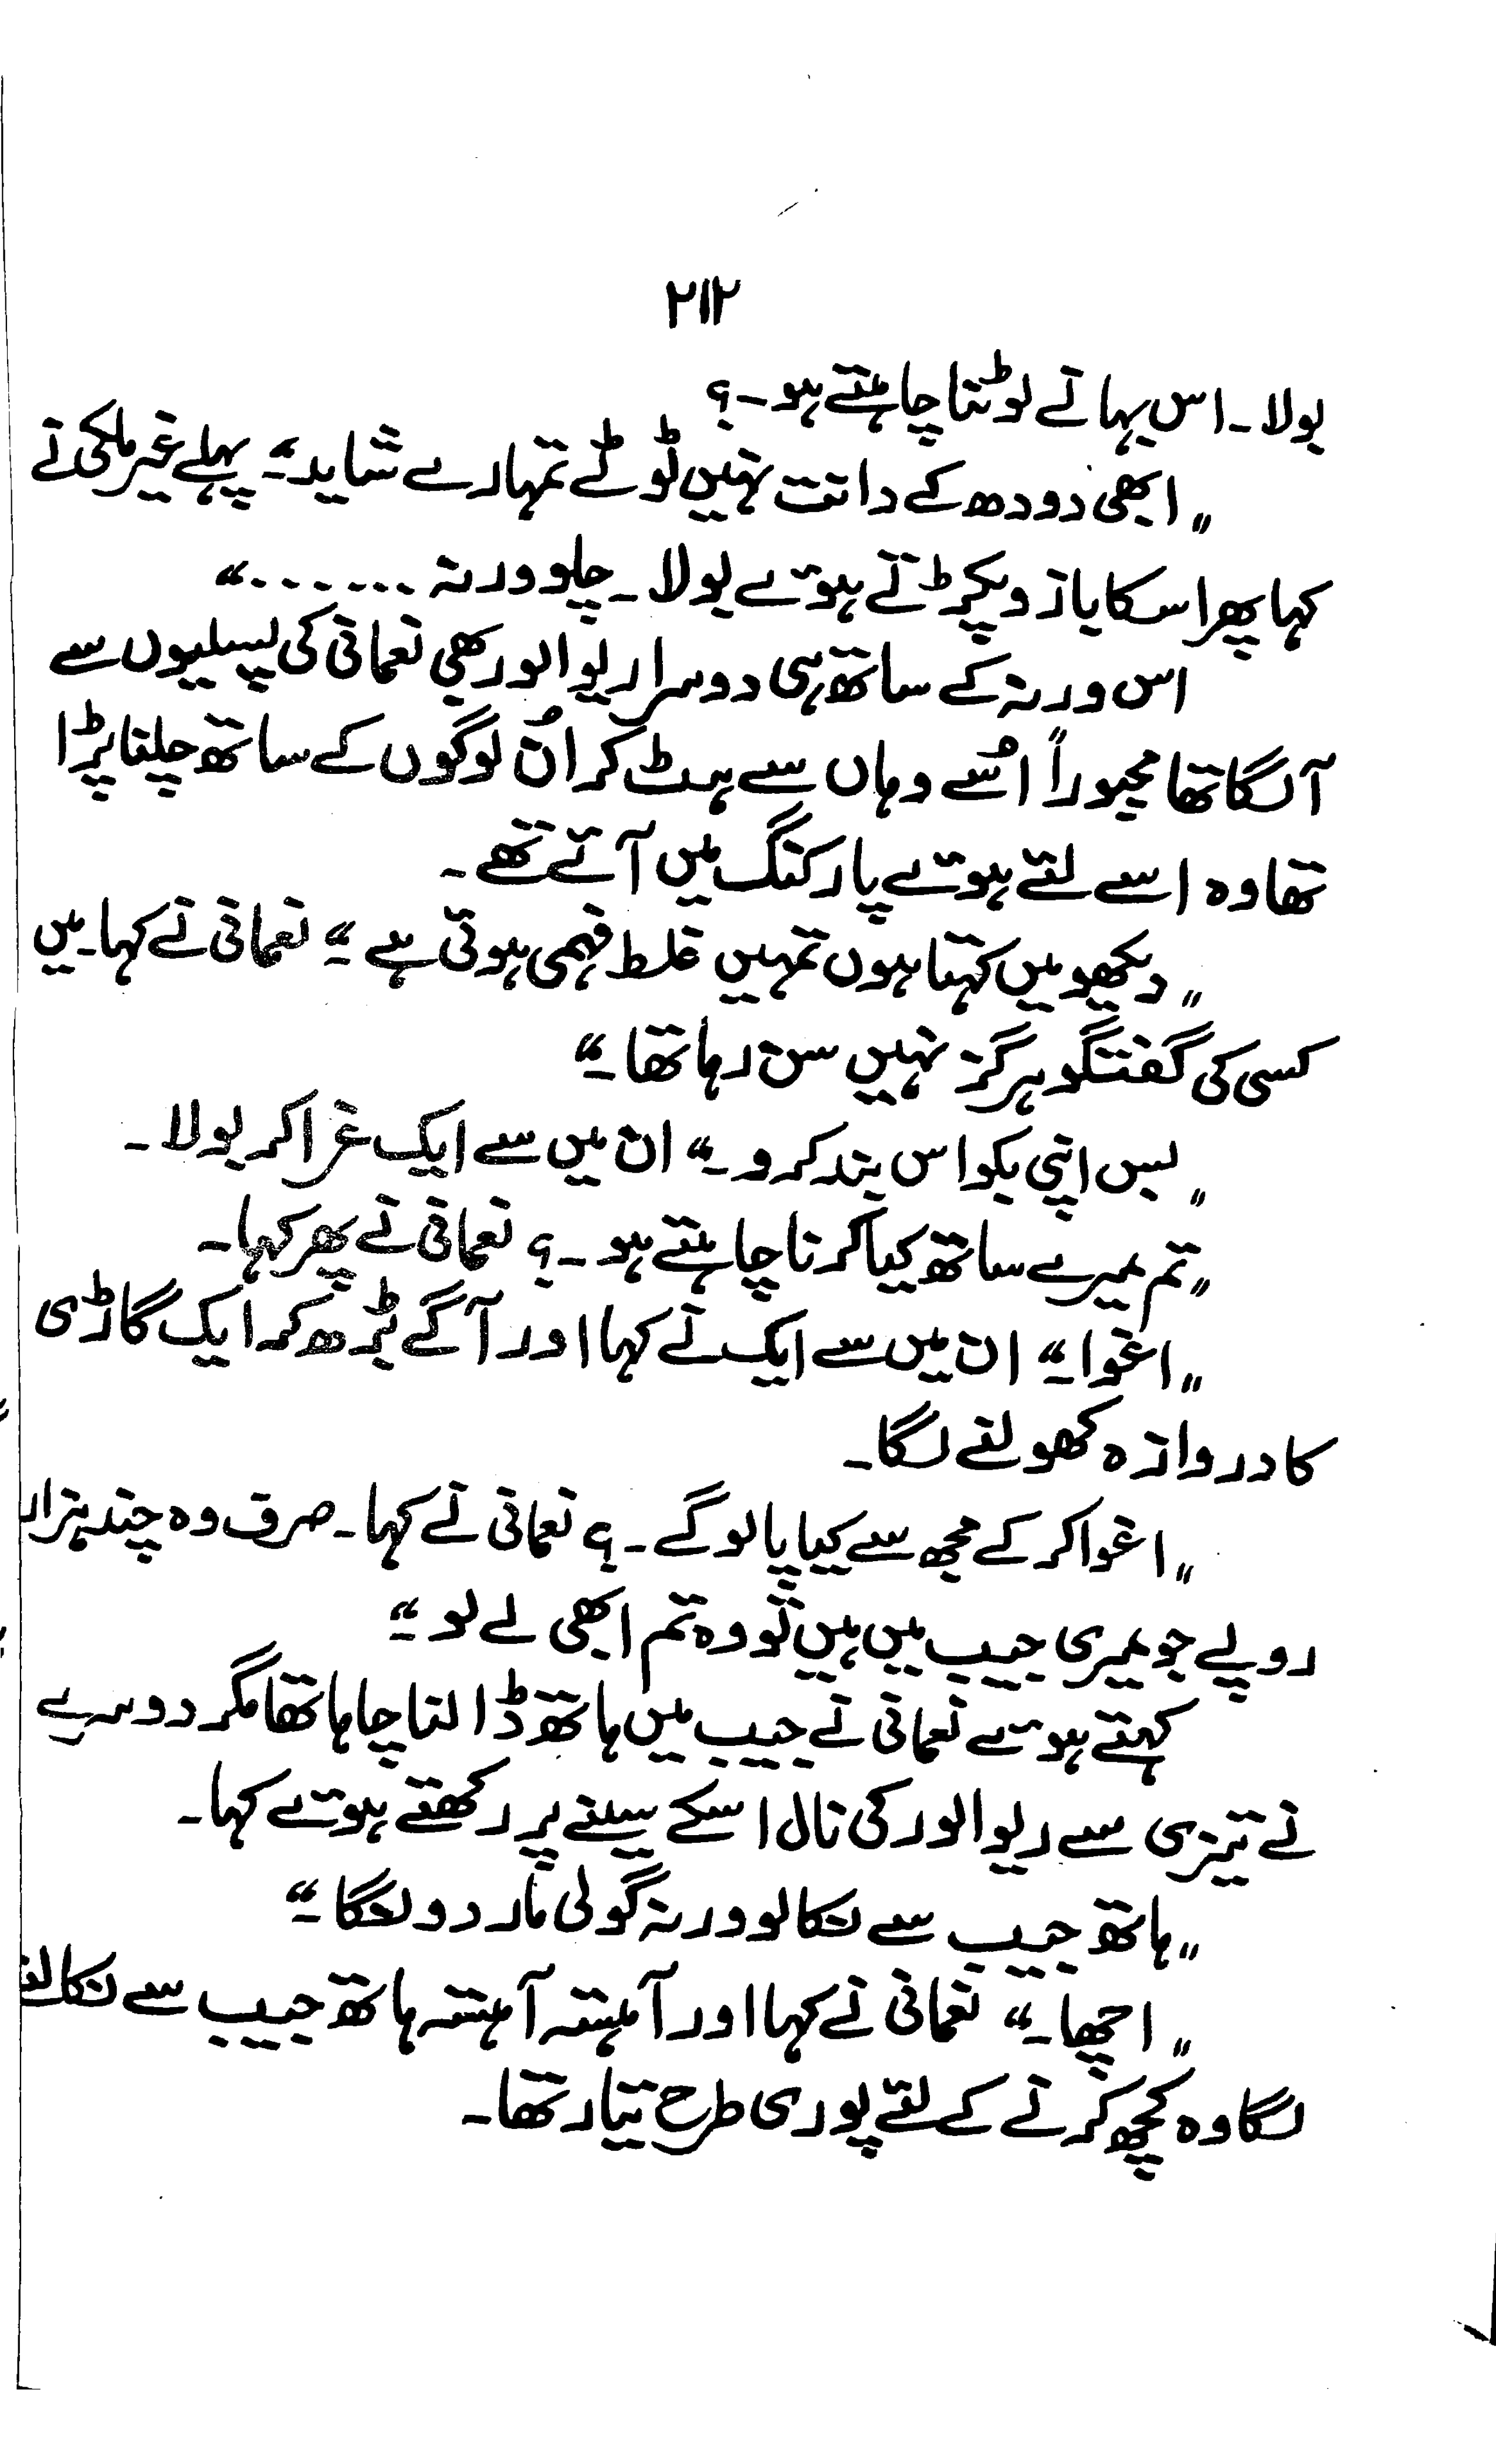 ۲۱۲
بولا۔ اس بہانے لوٹنا چاہتے ہو۔؟
"ابھی دودھ کے دانت نہیں ٹوٹے تمہارے شاید۔" پہلے غیر ملکی نے
کہا پھر اسکا بازو پکڑتے ہوئے بولا۔ چلو ورنہ ......."
اس ورنہ کے ساتھ ہی دوسرا ریوالور بھی نعمانی کی پسلیوں سے
آ لگا تھا مجبوراً اُسے وہاں سے ہٹ کر اُن لوگوں کے ساتھ چلنا پڑا
تھا وہ اسے لئے ہوئے پارکنگ میں آئے تھے۔
"دیکھو میں کہتا ہوں تمہیں غلط فہمی ہوئی ہے۔" نعمانی نے کہا۔ میں
کسی کی گفتگو ہرگز نہیں سن رہا تھا۔"
"بس اپنی بکواس بند کرو۔" ان میں سے ایک غرا کر بولا۔
"تم میرے ساتھ کیا کرنا چاہتے ہو۔؟ نعمانی نے پھر کہا۔
"اغوا۔" ان میں سے ایک نے کہا اور آگے بڑھ کر ایک گاڑی
کا دروازہ کھولنے لگا۔
"اغوا کر کے مجھ سے کیا پا لو گے۔؟ نعمانی نے کہا۔ صرف وہ چند ہزار
روپے جو میری جیب میں ہیں تو وہ تم ابھی لے لو۔"
کہتے ہوئے نعمانی نے جیب میں ہاتھ ڈالنا چاہا تھا مگر دوسرے
نے تیزی سے ریوالور کی نال اسکے سینے پر رکھتے ہوئے کہا۔
"ہاتھ جیب سے نکالو ورنہ گولی مار دونگا۔"
"اچھا۔" نعمانی نے کہا اور آہستہ آہستہ ہاتھ جیب سے نکالنے
لگا وہ کچھ کرنے کے لئے پوری طرح تیار تھا۔